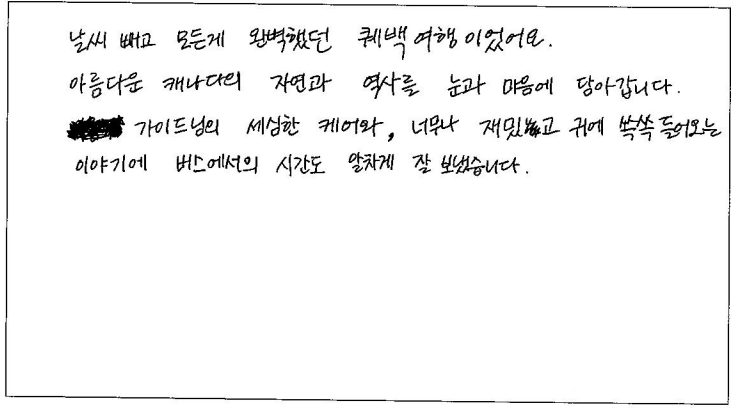 날씨 빼고 모든게 완벽했던 퀘백 여행이었어요.
아름다운 캐나다의 자연과 역사를 눈과 마음에 담아갑니다.
가이드님의 세심한 케어와, 너무나 재밌고 귀에 쏙쏙 들어오는
이야기에 버스에서의 시간도 알차게 잘 보냈습니다.